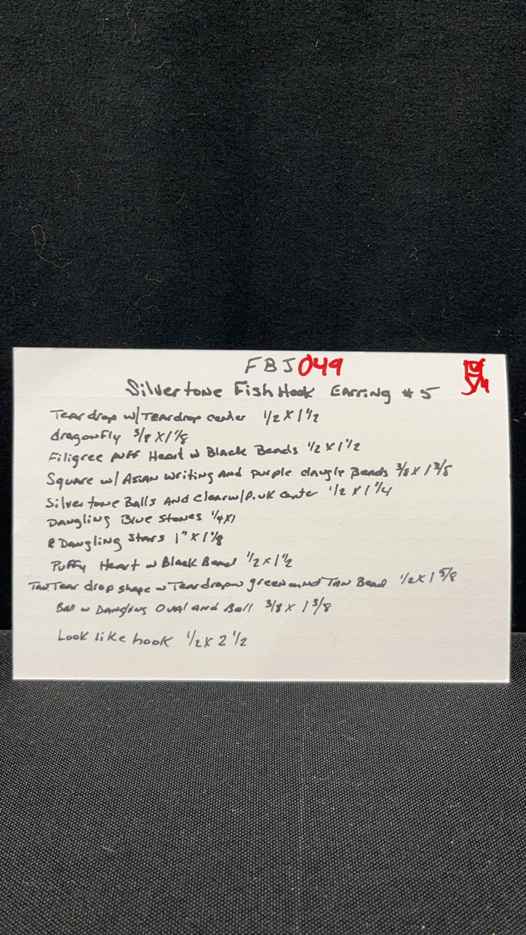 FBJ049
Silvertone Fish Hook Earring #5
Tear drop w/ Teardrop center 1/2 X 1 1/2
dragonfly 3/8 X 1 1/8
Filigree puff Heart w Black Beads 1/2 X 1 1/2
Square w/ Asian writing And purple dangle Beads 3/8 X 1 3/8
Silvertone Balls And clear w/ center 1/2 X 1 1/4
Dangling Blue Stones 1/4X1
2 Dangling Stars 1" X 1 1/8
Puffy Heart w Black Band 1/2 X 1 1/2
Tan Tear drop shape w Teardrop green and Tan Bead 1/2 X 1 5/8
w Dangling Oval and Ball 3/8 X 1 3/8
Look like hook 1/2 X 2 1/2